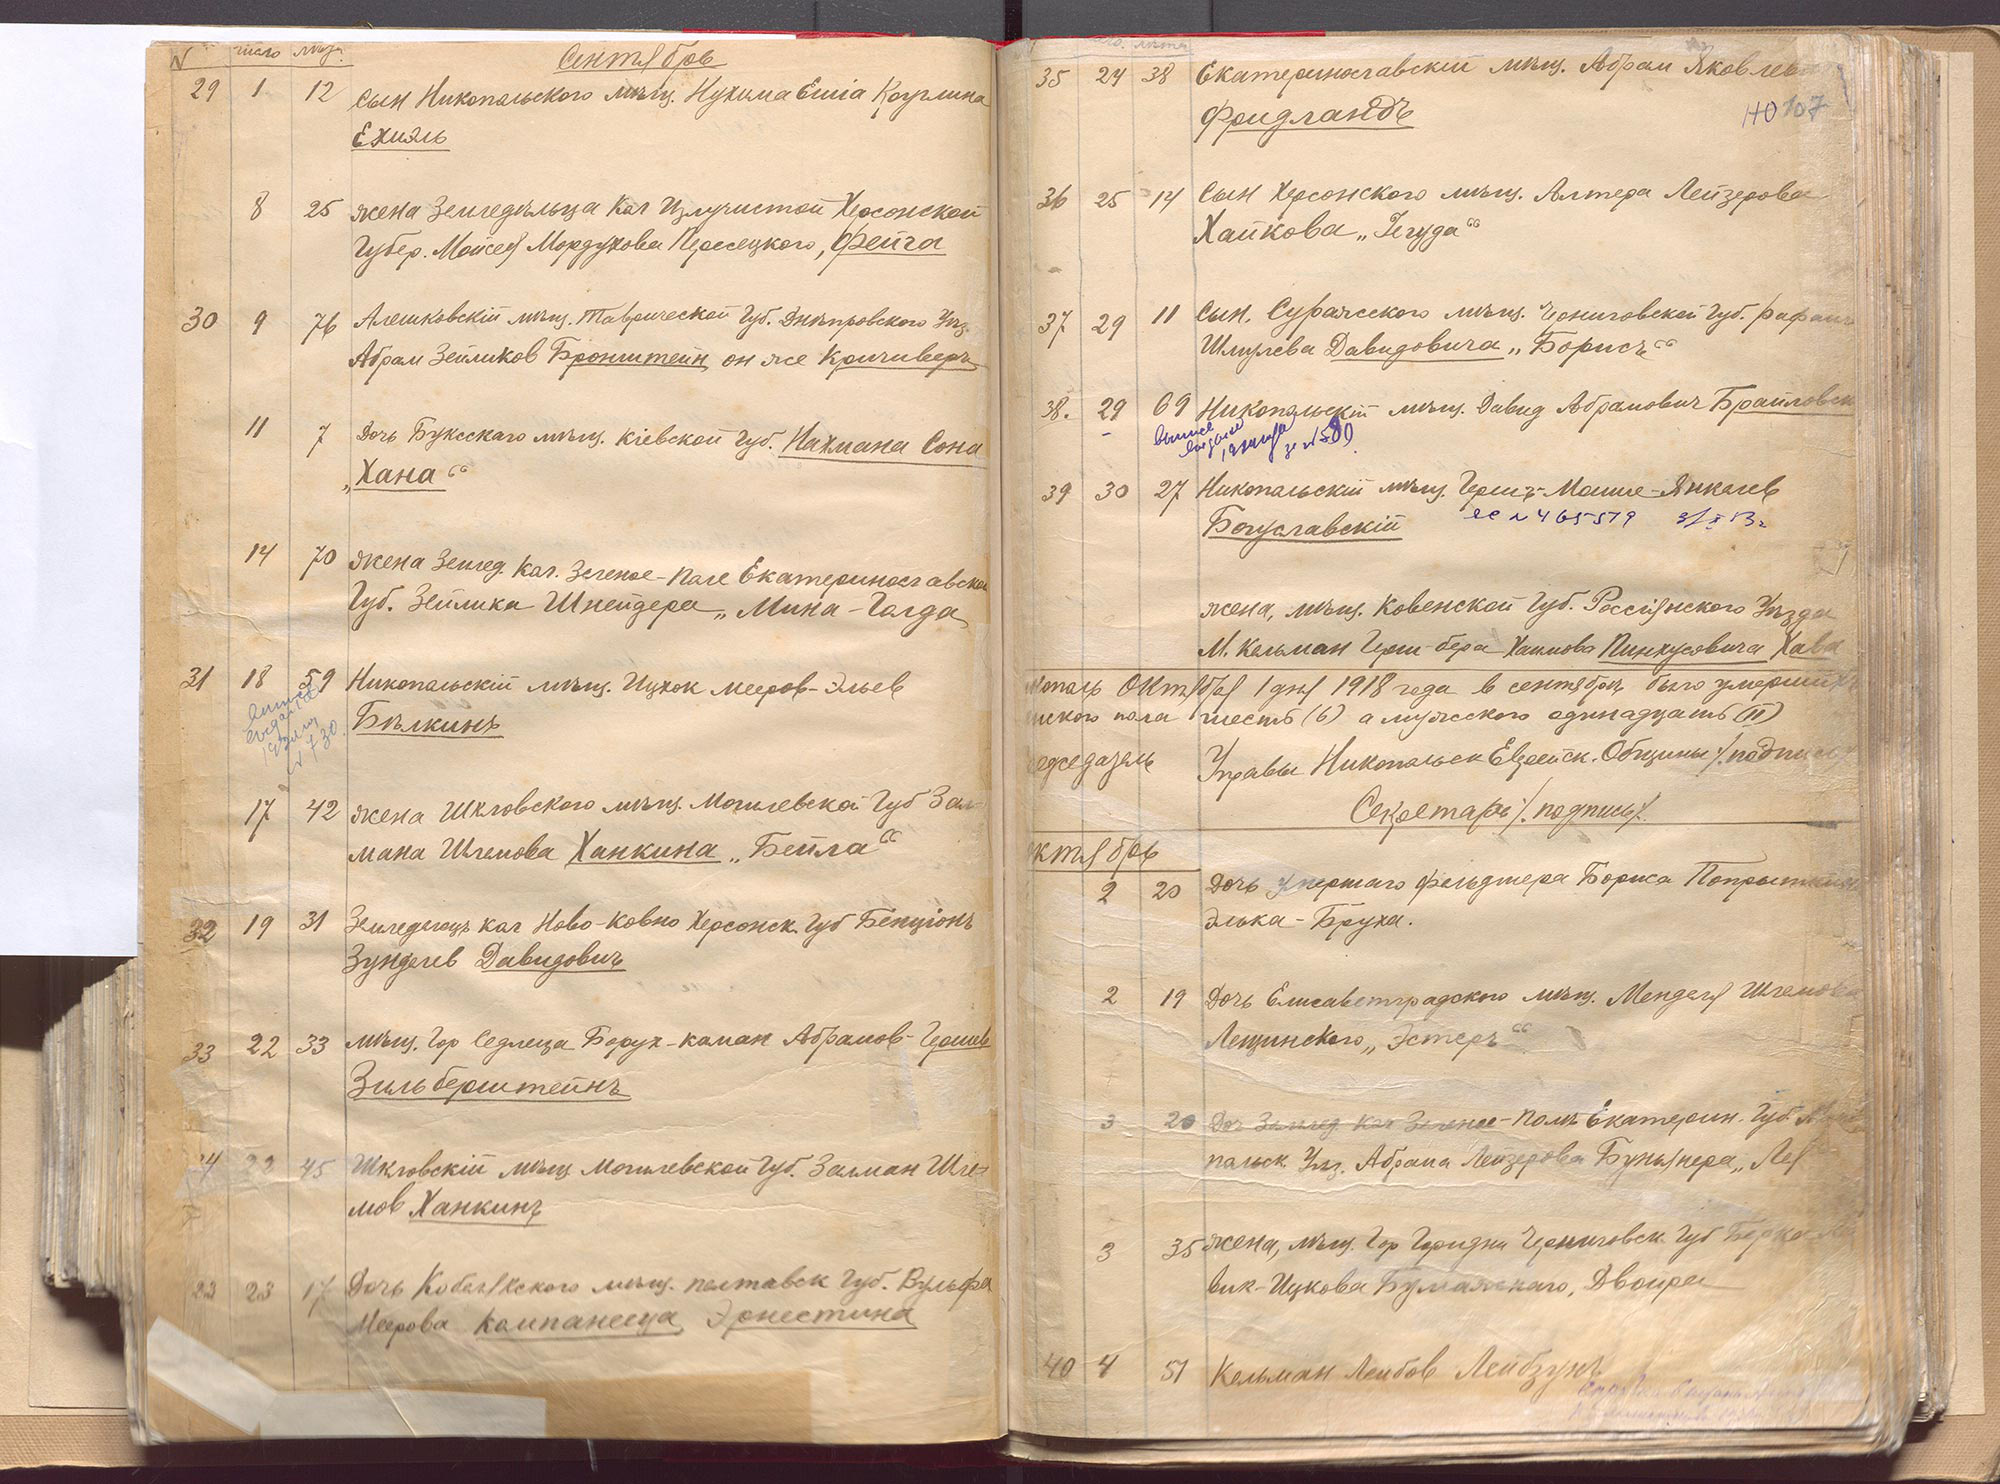 N число лѣта
Сентябрь
29 1 12 Сын Никопольского мѣщ. Нухима Ешіа Коуглина
Ехиэль
8 25 жена Земледѣльца Кол Излучистой Херсонской
Губер. Мойсея Мордухова Пересецкого, Фейга
30 9 76 Алешковскій мѣщ. Таврической Губ. Днѣпровского Уѣз.
Абрам Зейликов Бронштейн, он же Кричиверъ
11 7 Дочь мѣщ. Кіевской Губ. Нахмана Сона
„Хана“
14 70 жена Землед. Кол. Зеленое-Поле Екатеринославской
Губ. Зейлика Шнейдера „Мина-Голда
31 18 59 Никопольскій мѣщ. Ицхок Мееров-Эльев
Бѣлкинъ
17 42 жена Шкловского мѣщ. Могилевской Губ Зал-
мана Шлемова Ханкина „Бейла“
32 19 31 Земледелецъ кол Ново-Ковно Херсонск. Губ Бенціонъ
Зунделев Давидовичъ
33 22 33 мѣщ. Гор Седлеца Борух-калман Абрамов-Гершев
Зильберштейнъ
23 45 Шкловскій мѣщ Могилевской Губ. Залман Шле-
мов Ханкинъ
23 23 17 Дочь Кобелякского мѣщ. Полтавск Губ. Вульфа
Меерова Компанееца, Эрнестина
35 24 38 Екатеринославскій мѣщ. Абрам Яковлев
Фридландъ
107
36 25 14 Сын Херсонского мѣщ. Алтера Лейзерова
Хайкова „Іегуда“
37 29 11 Сын. Суражского мѣщ. Черниговской Губ.
Шмулева Давидовича „Борисъ“
38. 29 69 Никопольскій мѣщ. Давид Абрамович Брайловск
39 30 27 Никопольскій мѣщ. Герш-Моше-Янкелев
Богуславскій
№ 465579
жена, мѣщ. Ковенской Губ. Россіянского Уѣзда
М. Кельман Герш-бера Хаимова Пинхусовича Хава
Октября 1 дня 1918 года в сентябрѣ было умерших
пола шесть (6) а мужского одинадцать (11)
Управы Никопольск Еврейск. Общины /подпись/
Секретарь /подпись/
2 20 Дочь умершаго фельдшера Бориса
Элька-Бруха.
2 19 Дочь Елисаветградского мѣщ. Менделя Шлемова
Лещинского „Эстеръ“
3 20 Доч Землед Кол Зеленое-Поль Екатерин. Губ.
польск Уѣз. Абрама Лейзерова „Лея
3 35 жена, мѣщ. Гор Городни Черниговск Губ
вик-Ицкова Бумажского, Двойра
40 4 51 Кельман Лейбов Лейбзунъ